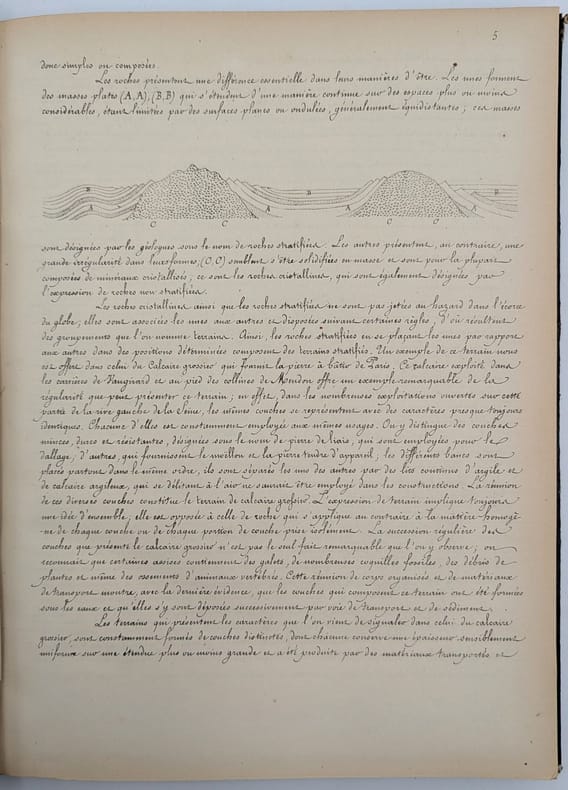 5
donc simples ou composées.
Les roches présentent une différence essentielle dans leurs manières d'être. Les unes forment
des masses plates (A,A),(B,B) qui s'étendent d'une manière continue sur des espaces plus ou moins
considérables, étant limitées par des surfaces planes ou ondulées, généralement équidistantes; ces masses
B B B
A A A A
C C C C
sont désignées par les géologues sous le nom de roches stratifiées. Les autres présentent, au contraire, une
grande irrégularité dans leurs formes; (C,C) semblent s'être solidifiées en masse et sont pour la plupart
composées de minéraux cristallisés; ce sont les roches cristallines, qui sont également désignées par
l'expression de roches non stratifiées.
Les roches cristallines ainsi que les roches stratifiées ne sont pas jetées au hazard dans l'écorce
du globe; elles sont associées les unes aux autres et disposées suivant certaines règles, d'où résultent
des groupements que l'on nomme terrains. Ainsi, les roches stratifiées en se plaçant les unes par rapport
aux autres dans des positions déterminées composent des terrains stratifiés. Un exemple de ce terrain nous
est offert dans celui du Calcaire grossier qui forment la pierre à bâtir de Paris. Ce calcaire exploité dans
les carrières de Vaugirard et au pied des collines de Meudon offre un exemple remarquable de la
régularité que peut présenter ce terrain; en effet, dans les nombreuses exploitations ouvertes sur cette
partie de la rive gauche de la Seine, les mêmes couches se représentent avec des caractères presque toujours
identiques. Chacune d'elles est constamment employée aux mêmes usages. On y distingue des couches
minces, dures et résistantes, désignées sous le nom de pierre de liais, qui sont employées pour le
dallage, d'autres, qui fournissent le moellon et la pierre tendre d'appareil; les différents bancs sont
placés partout dans le même ordre; ils sont séparés les uns des autres par des lits continus d'argile et
de calcaire argileux, qui se délitant à l'air ne sauraient être employé dans les constructions. La réunion
de ces diverses couches constitue le terrain de calcaire grossier. L'expression de terrain implique toujours
une idée d'ensemble; elle est opposée à celle de roche qui s'applique au contraire à la matière homogè-
-ne de chaque couche ou de chaque portion de couche prise isolément. La succession régulière des
couches que présente le calcaire grossier n'est pas le seul fait remarquable que l'on y observe; on
reconnait que certaines assises contiennent des galets, de nombreuses coquilles fossiles, des débris de
plantes et même des ossements d'animaux vertébrés. Cette réunion de corps organisés et de matériaux
de transport montre, avec la dernière évidence, que les couches qui composent ce terrain ont été formées
sous les eaux et qu'elles s'y sont déposées successivement par voie de transport et de sédiment.
Les terrains qui présentent les caractères que l'on vient de signaler dans celui du calcaire
grossier, sont constamment formés de couches distinctes, dont chacune conserve une épaisseur sensiblement
uniforme sur une étendue plus ou moins grande et a été produite par des matériaux transportés et